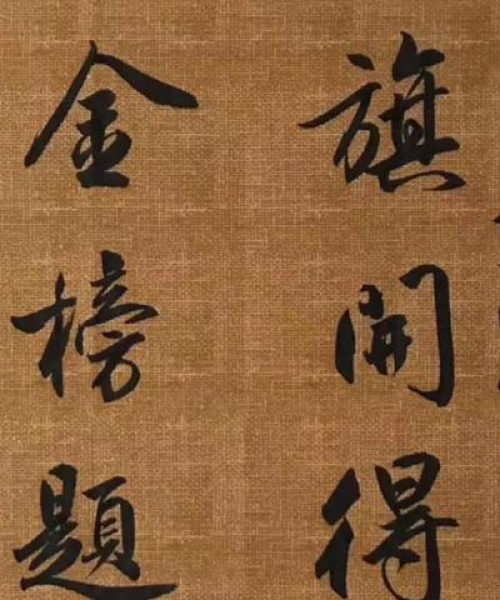 旗開得
金榜題